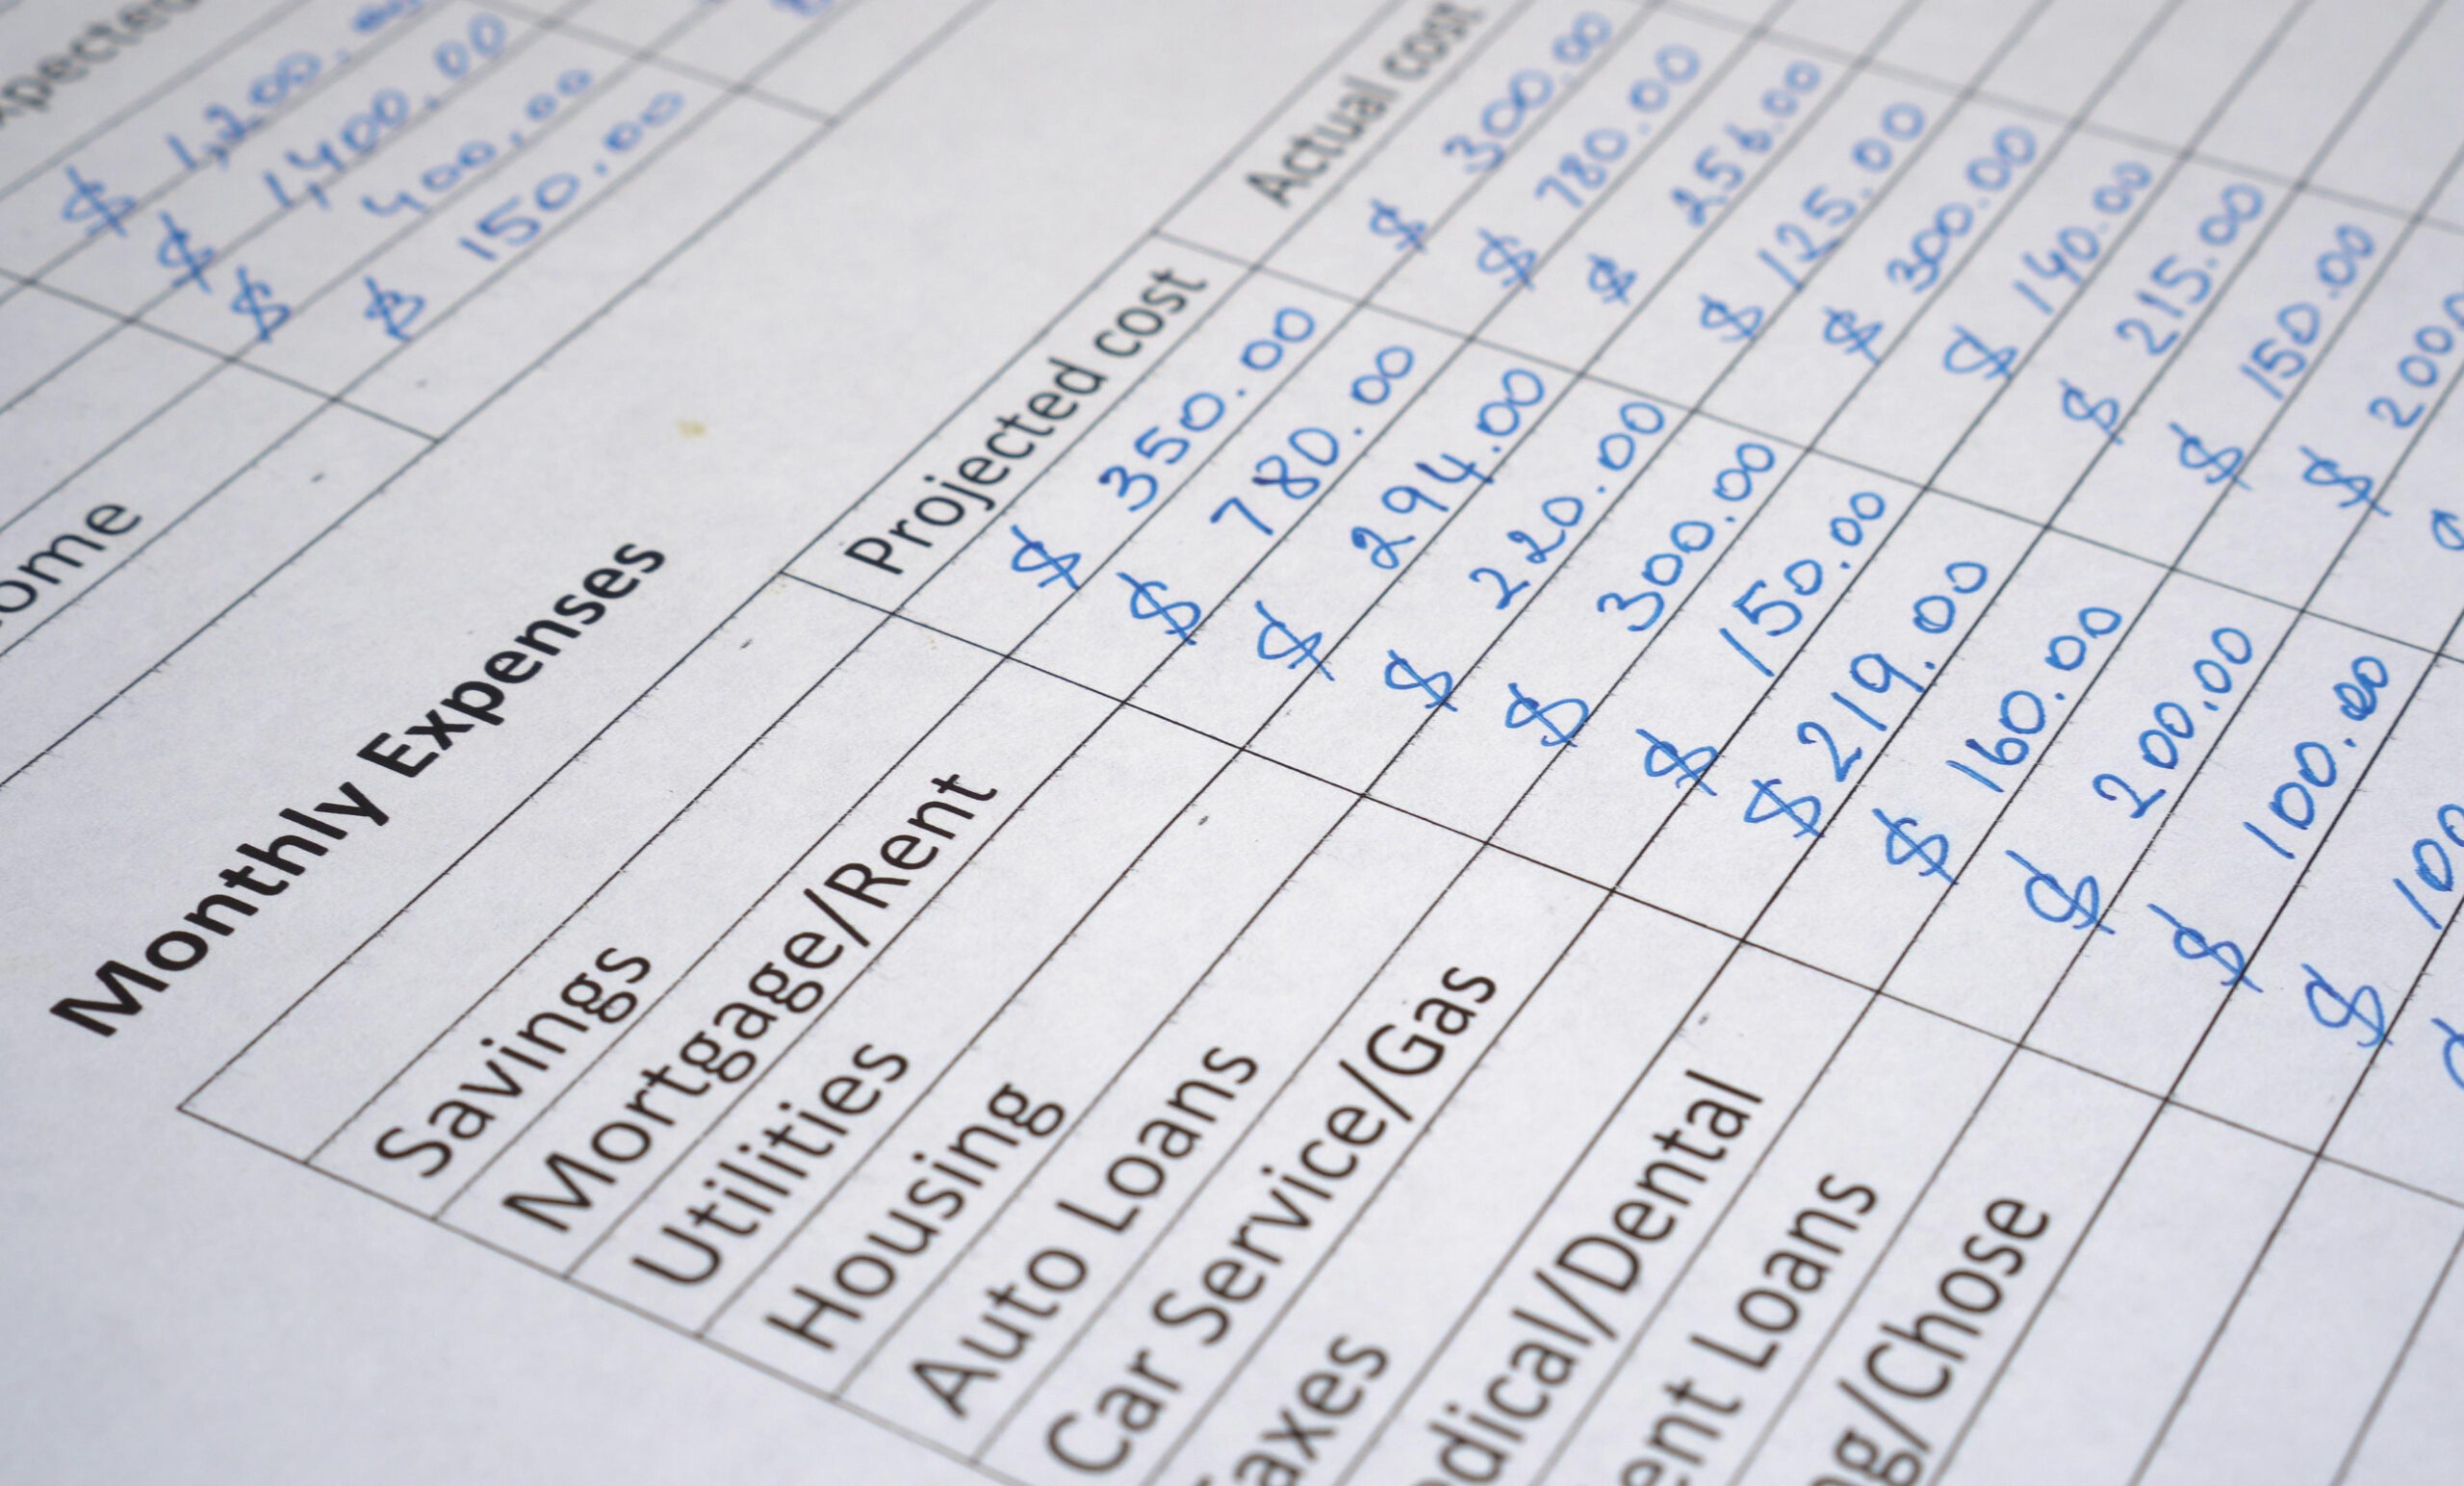 xpected
$ 1,200.00
$ 1,400.00
$ 400.00
$ 150.00
ome
Monthly Expenses
Projected cost Actual cost
Savings $ 350.00 $ 300.00
Mortgage/Rent $ 780.00 $ 780.00
Utilities $ 294.00 $ 256.00
Housing $ 220.00 $ 125.00
Auto Loans $ 300.00 $ 300.00
Car Service/Gas $ 150.00 $ 140.00
axes $ 219.00 $ 215.00
dical/Dental $ 160.00 $ 150.00
ent Loans $ 200.00 $ 200
ng/Chose $ 100.00
$ 100